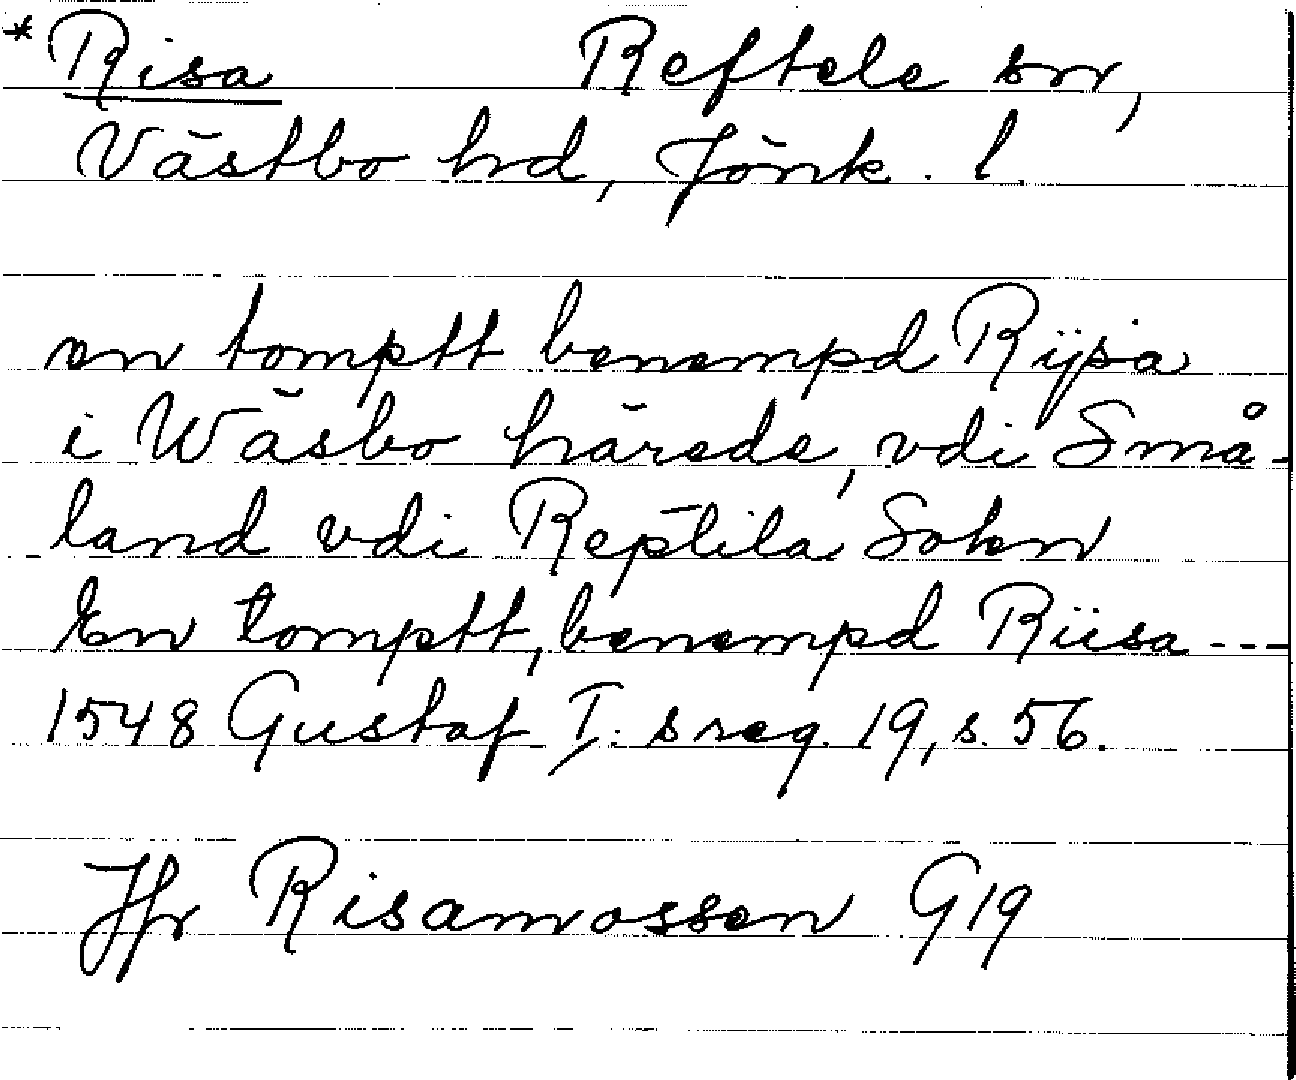 * Risa Reftele sn,
Västbo hd, Jönk. l.
en tomptt benempd Rÿsa
i Wäsbo härede, vdi Små-
land vdi Reptila Sokn
En tomptt, benempd Riisa ---
1548 Gustaf I: s reg. 19, s. 56.
Jfr Risamossen G19